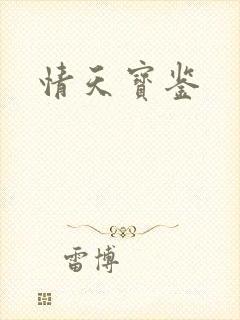 情天寶鉴
雷博